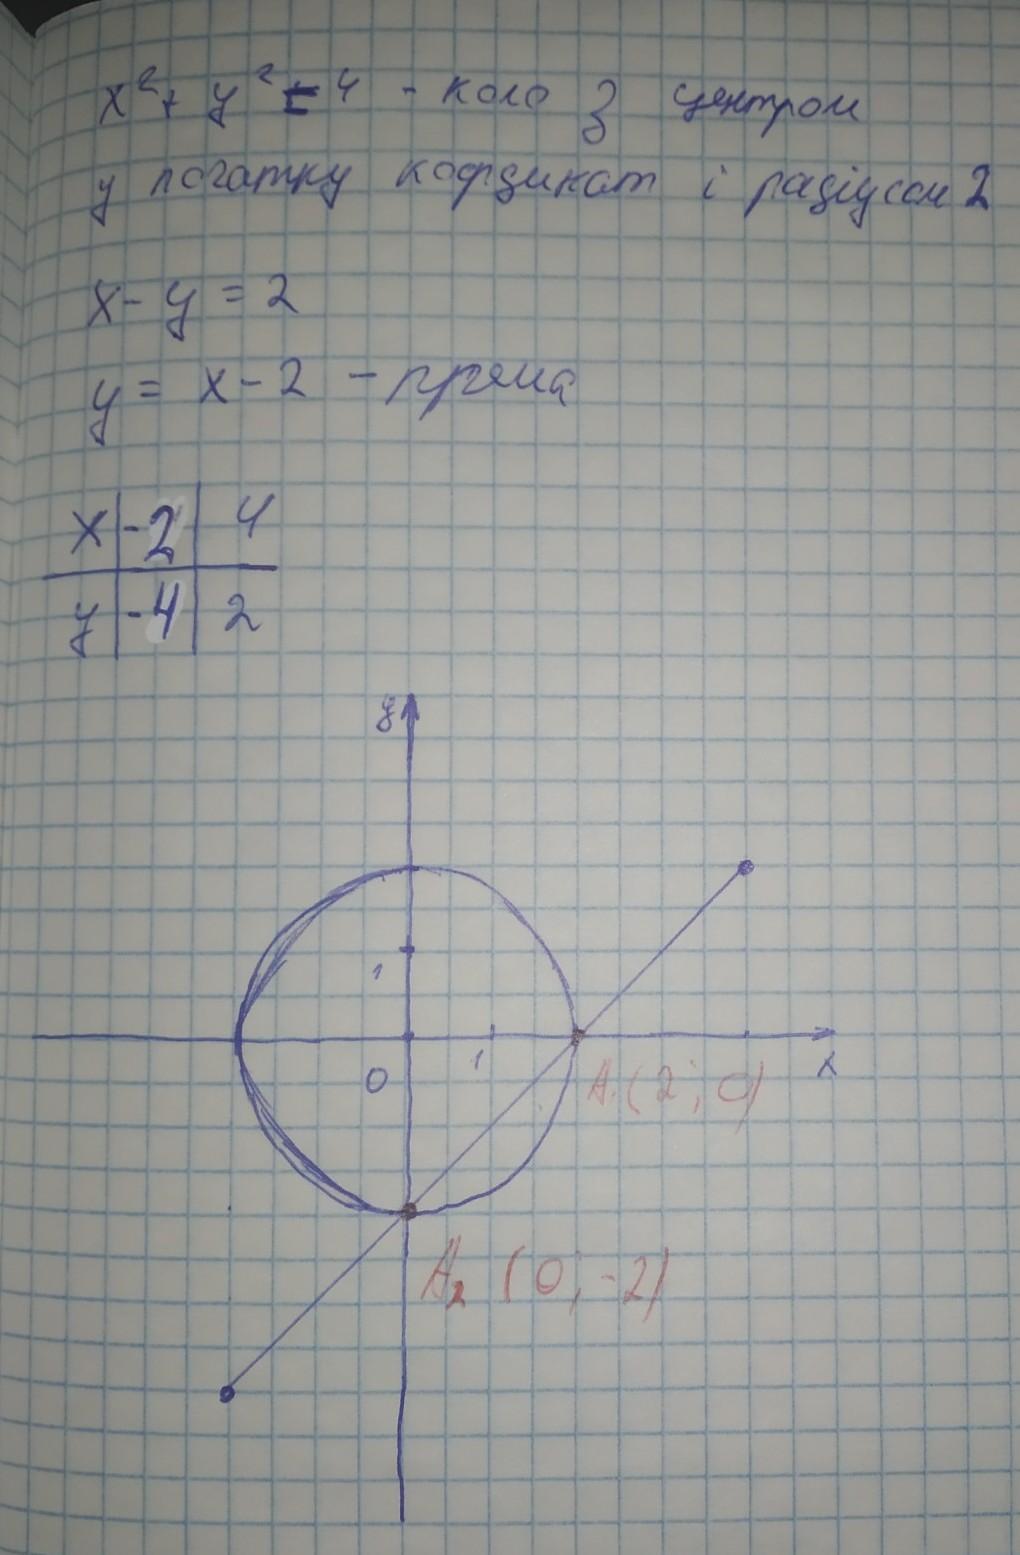 x² + y² = 4 - коло з центром
у початку координат і радіусом 2
x - y = 2
y = x - 2 - пряма
x | -2 | 4
y | -4 | 2
y
1
0 1 x
A₁ (2; 0)
A₂ (0; -2)